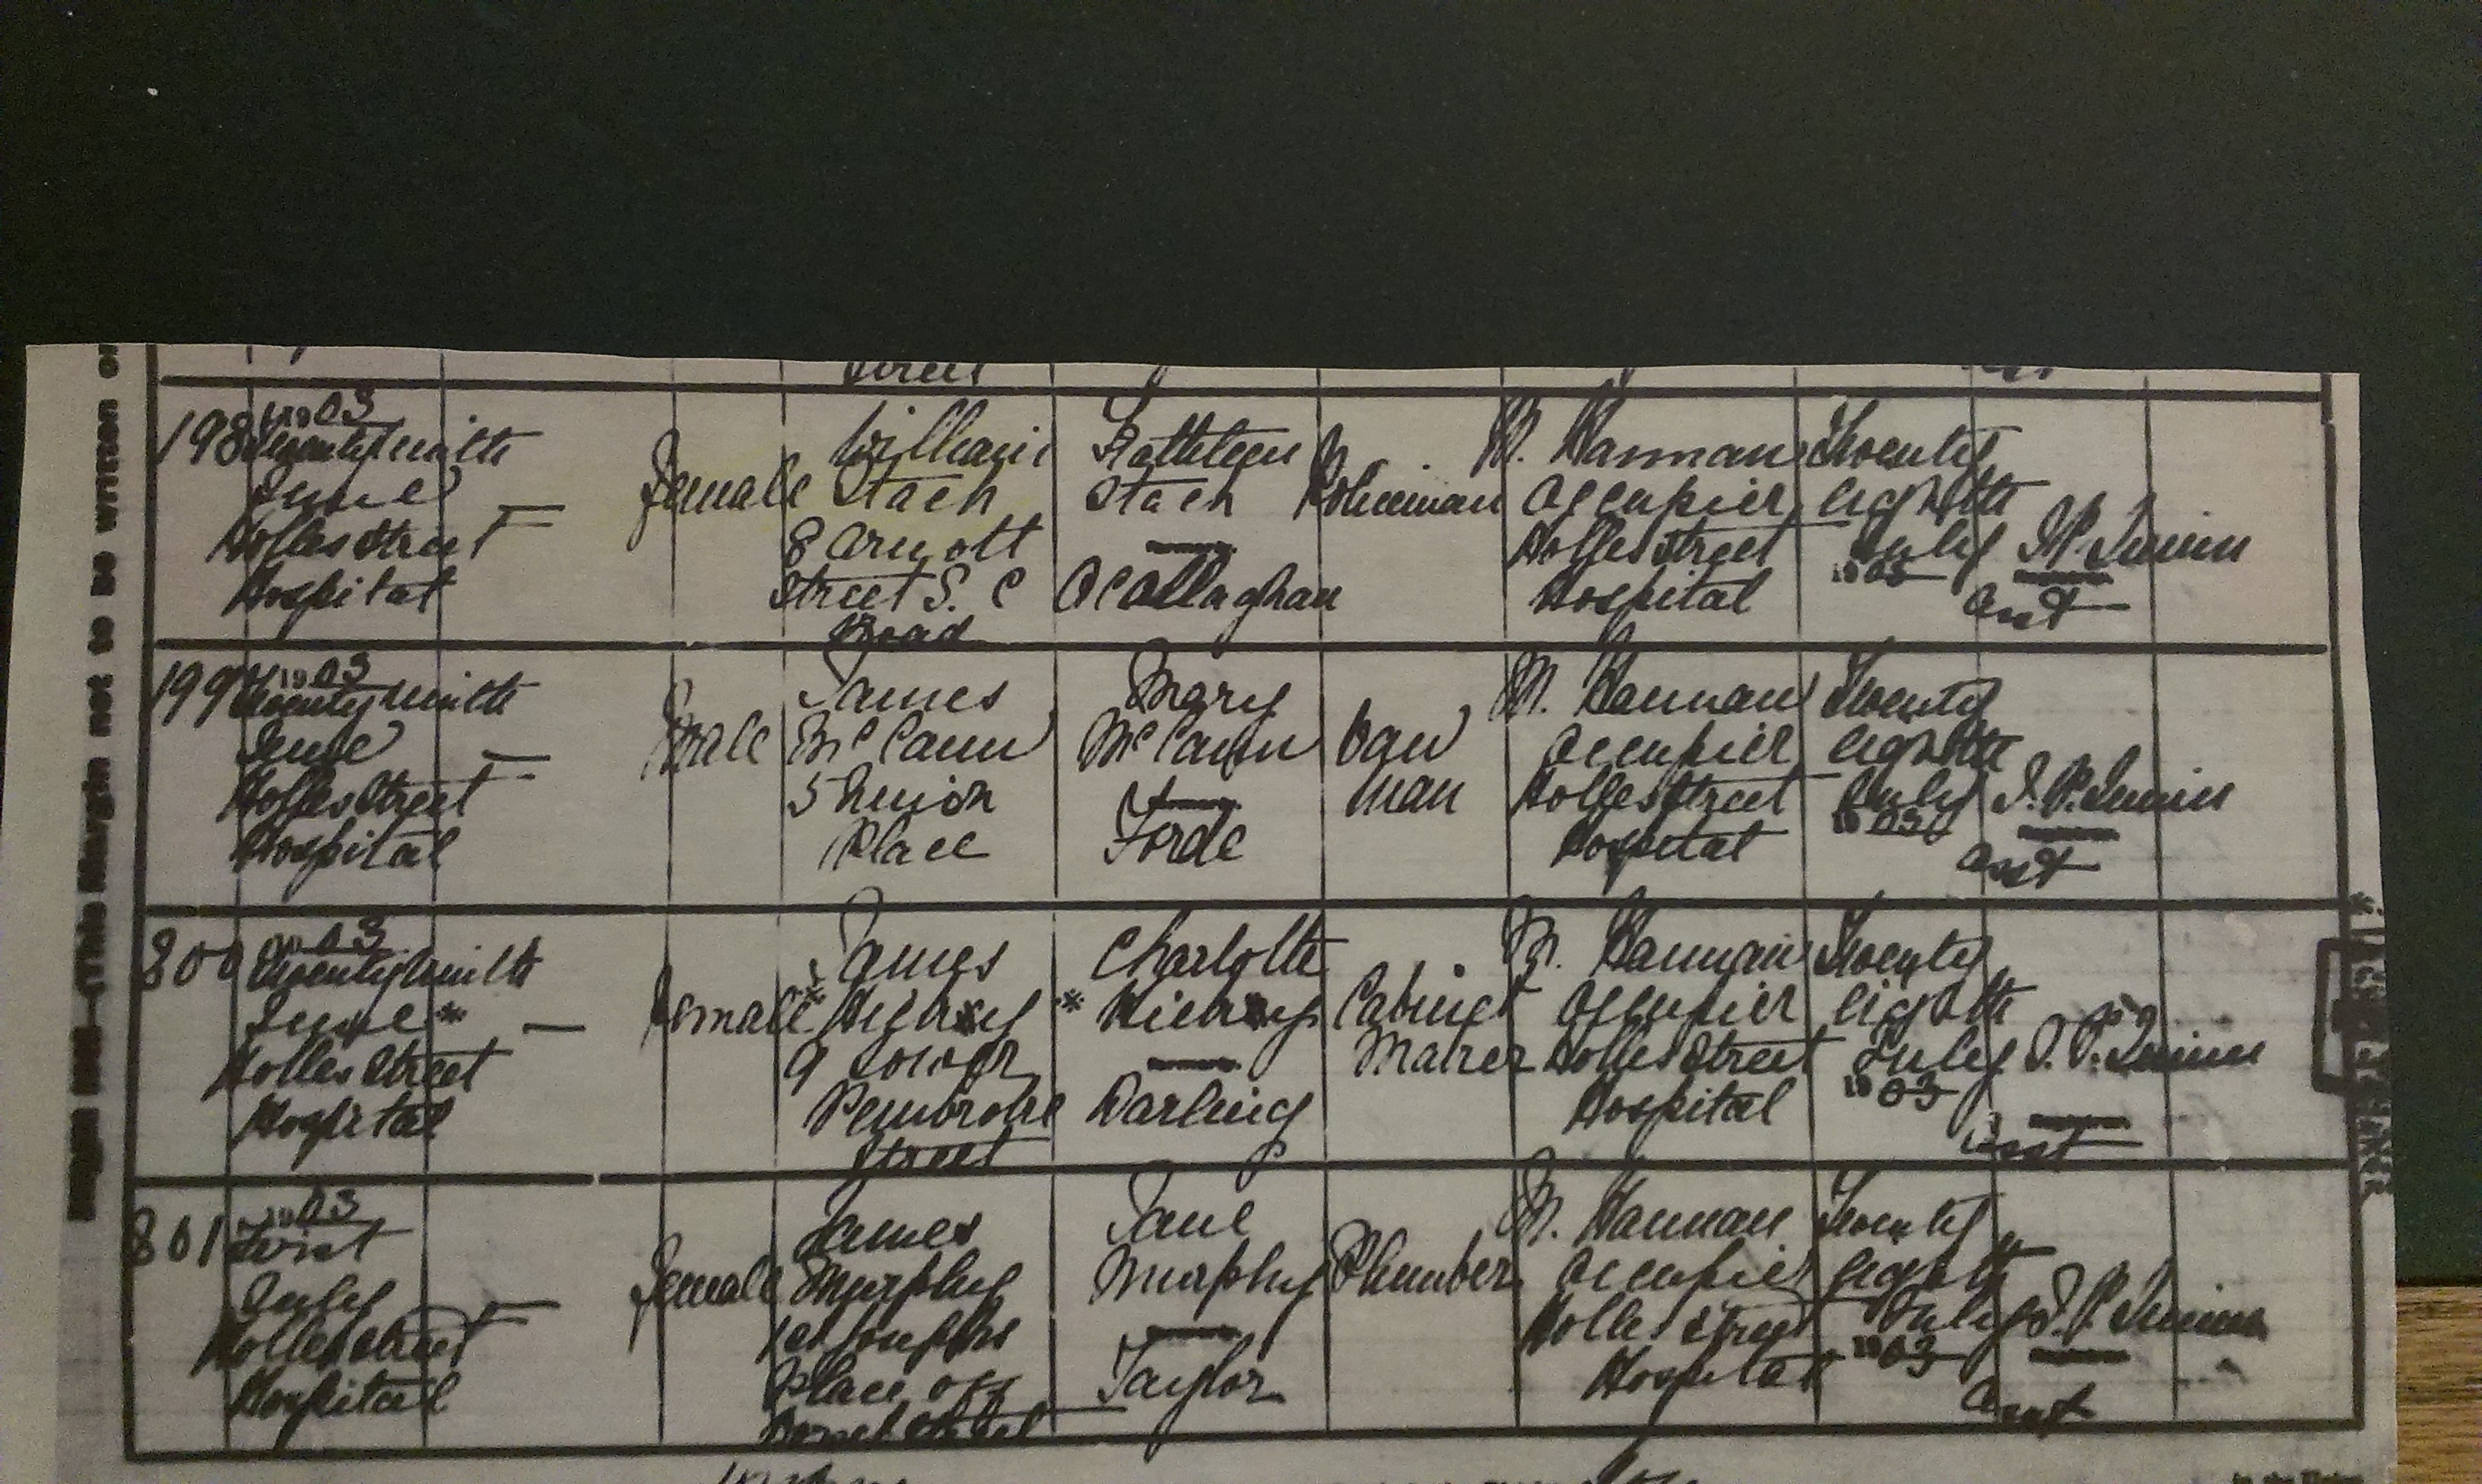 198
1903
Twenty ninth
June
Holles Street
Hospital
—
Female
William
Stach
8 Arnott
Street S. C
Road
Kathleen
Stach
O'Callaghan
Policeman
M. Hannan
Occupier
Holles Street
Hospital
Twenty
eighth
July
1903
Asst
199
1903
Twenty ninth
June
Holles Street
Hospital
—
Male
James
McCann
5 Union
Place
Mary
McCann
Forde
Van
man
M. Hannan
Occupier
Holles Street
Hospital
Twenty
eighth
July
1903
Asst
800
1903
Twenty ninth
June *
Holles Street
Hospital
—
Female
James
9 Lower
Pembroke
Street
Charlotte
Darling
Cabinet
Maker
M. Hannan
Occupier
Holles Street
Hospital
Twenty
eighth
July
1903
Asst
801
1903
First
July
Holles Street
Hospital
—
Female
James
Murphy
Place off
Dorset Street
Jane
Murphy
Taylor
Plumber
M. Hannan
Occupier
Holles Street
Hospital
Twenty
eighth
July
1903
Asst
(This Margin not to be written on